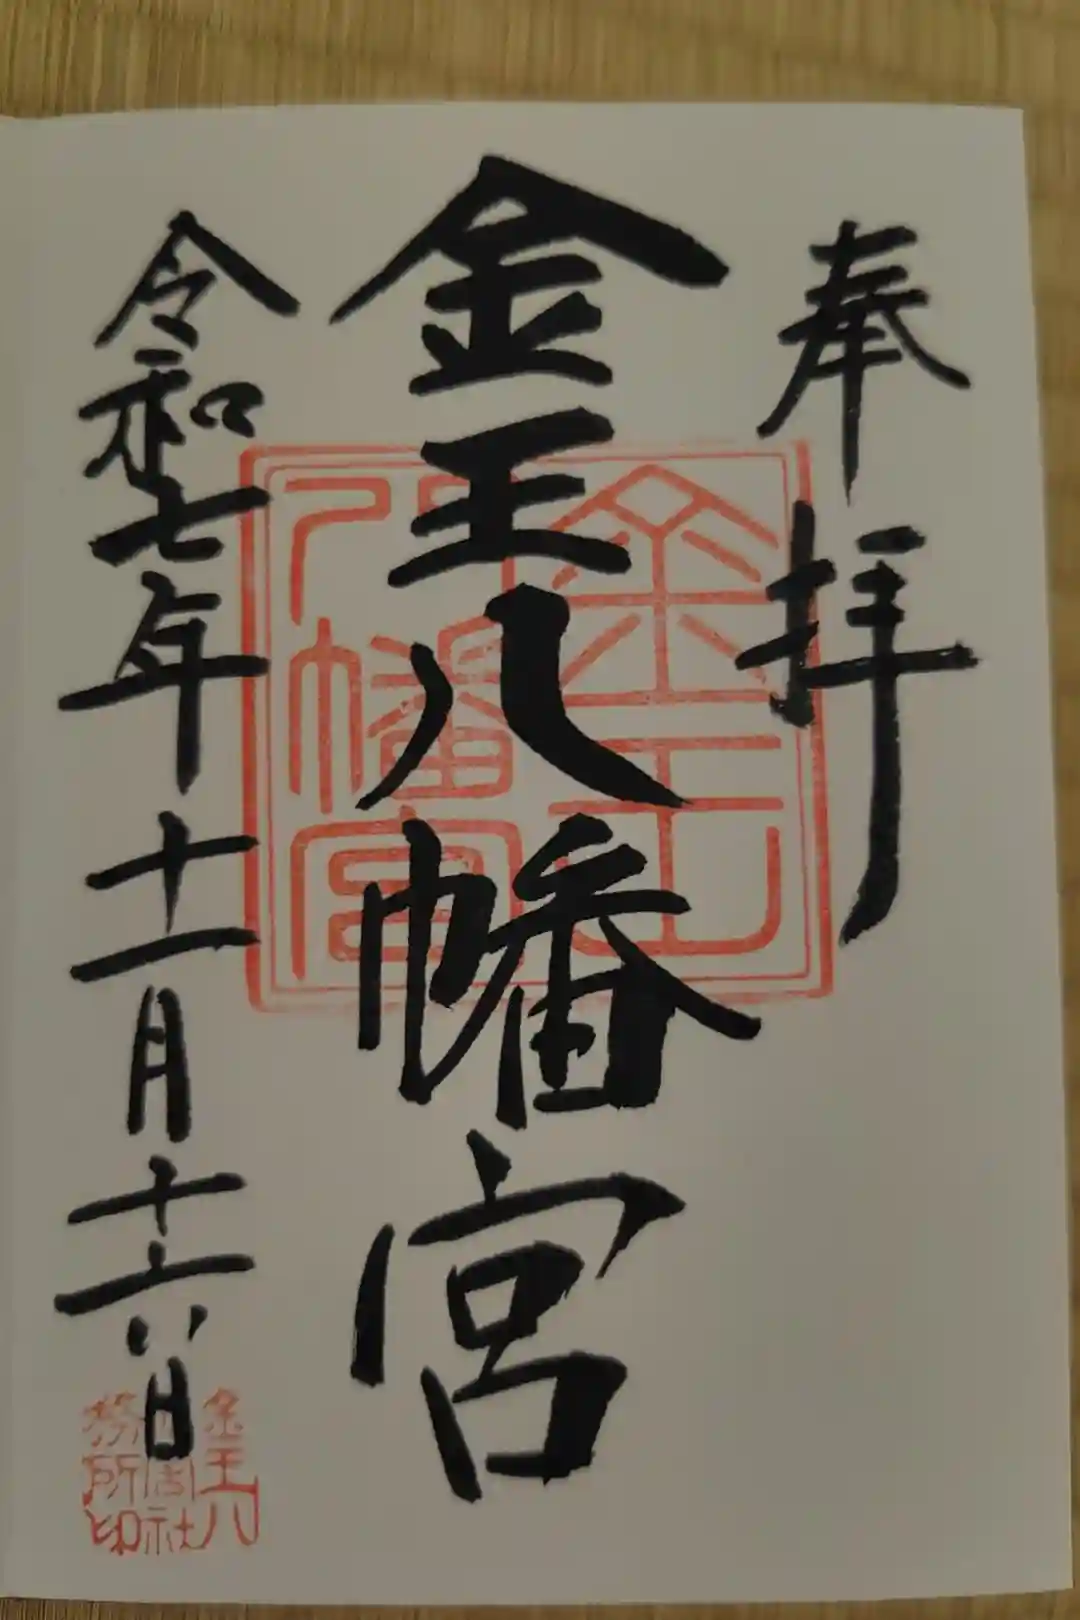 奉拝
金王八幡宮
令和七年十一月十六日
金王
八幡宮
金王八
幡宮社
務所印